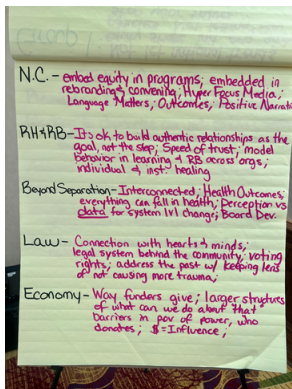 N.C. - embed equity in programs; embedded in
rebranding & convening; Hyper Focus Media;
Language Matters; Outcomes; Positive Narrati
RH&RB - It's ok to build authentic relationships as the
goal, not the step; Speed of trust; model
behavior in learning & RB across orgs;
individual & inst. healing
Beyond Separation - Interconnected; Health Outcomes;
everything can fall in health; Perception vs
data for system lvl change; Board Dev.
Law - Connection with hearts & minds;
legal system behind the community; voting
rights; address the past w/ keeping lens
of not causing more trauma;
Economy - Way funders give; larger structures
of what can we do about that
barriers in pov of power, who
donates; $=Influence;